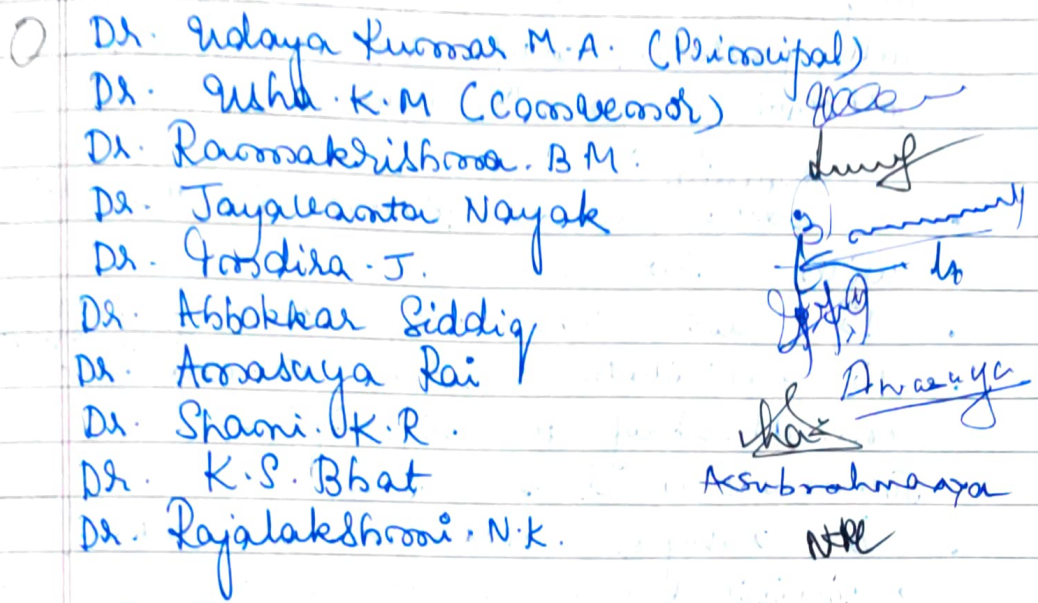 Dr. Udaya Kumar M.A. (Principal)
Dr. Usha. K.M (Convenor)
Dr. Ramakrishna. B M.
Dr. Jayakanta Nayak
Dr. Indira. J.
Dr. Abbokkar Siddiq
Dr. Anasuya Rai Anasuya
Dr. Shani. K.R.
Dr. K.S. Bhat
Dr. Rajalakshmi. N.K.